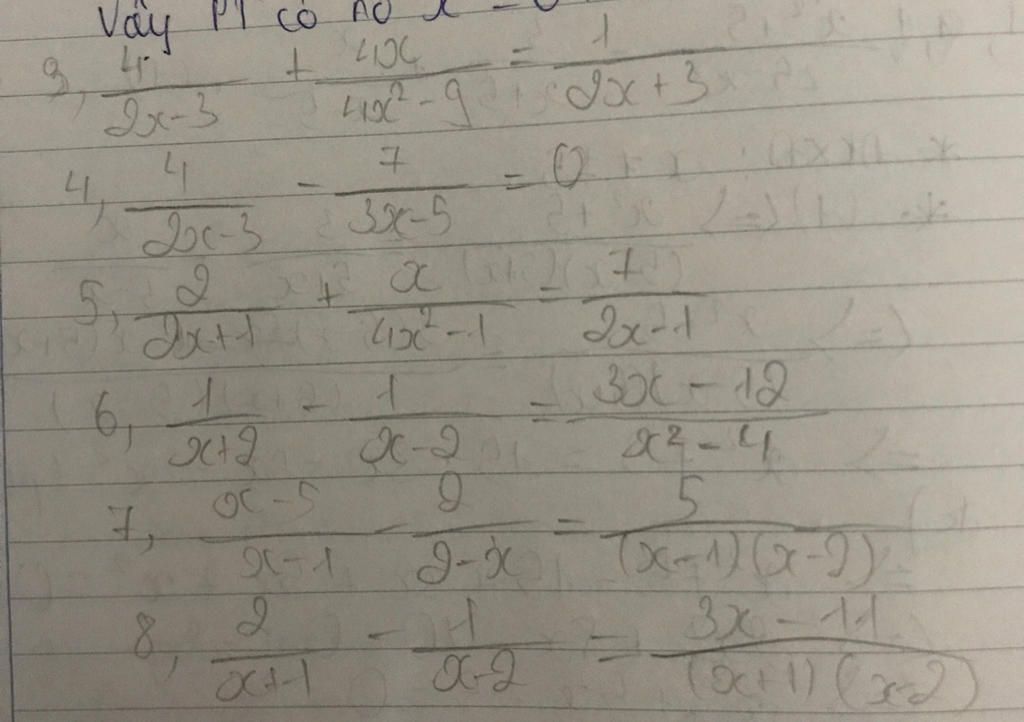 Vậy PT có no x = 0
3, 4/(2x-3) + 4x/(4x²-9) = 1/(2x+3)
4, 4/(2x-3) - 7/(3x-5) = 0
5, 2/(2x+1) + x/(4x²-1) = 7/(2x-1)
6, 1/(x+2) - 1/(x-2) = (3x-12)/(x²-4)
7, (x-5)/(x-1) - 2/(2-x) = 5/((x-1)(x-2))
8, 2/(x+1) - 1/(x-2) = (3x-11)/((x+1)(x-2))